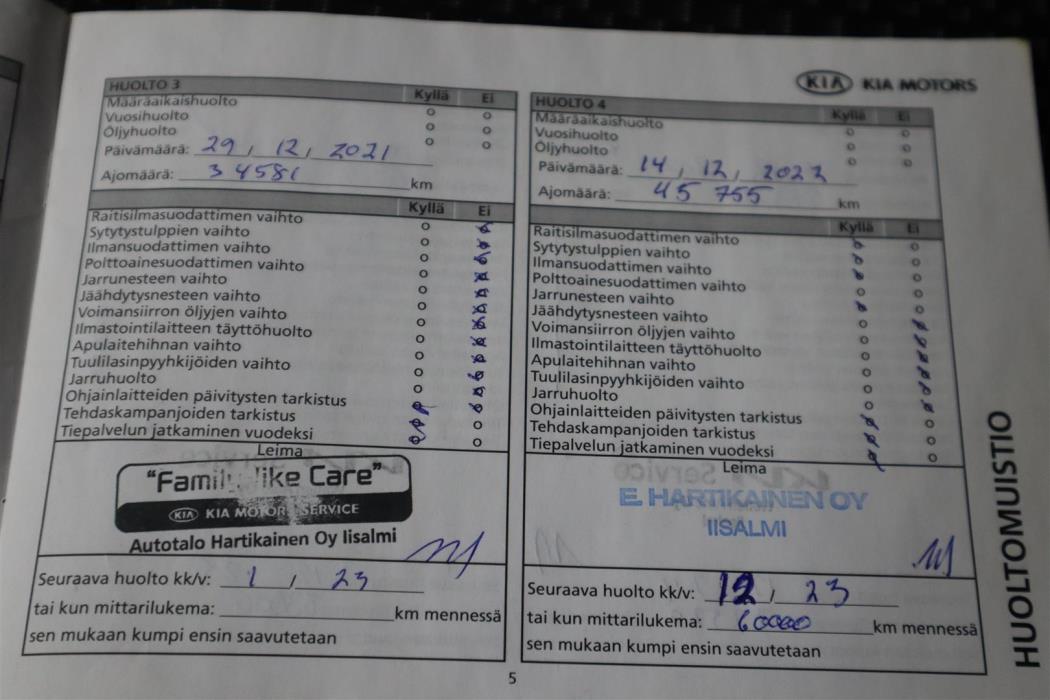 KIA KIA MOTORS
HUOLTO 3 Kyllä Ei
Määräaikaishuolto
Vuosihuolto
Öljyhuolto
Päivämäärä: 29, 12, 2021
Ajomäärä: 34581 km
Kyllä Ei
Raitisilmasuodattimen vaihto
Sytytystulppien vaihto
Ilmansuodattimen vaihto
Polttoainesuodattimen vaihto
Jarrunesteen vaihto
Jäähdytysnesteen vaihto
Voimansiirron öljyjen vaihto
Ilmastointilaitteen täyttöhuolto
Apulaitehihnan vaihto
Tuulilasinpyyhkijöiden vaihto
Jarruhuolto
Ohjainlaitteiden päivitysten tarkistus
Tehdaskampanjoiden tarkistus
Tiepalvelun jatkaminen vuodeksi
Leima
"Family like Care"
KIA KIA MOTORS SERVICE
Autotalo Hartikainen Oy Iisalmi
Seuraava huolto kk/v: 1, 23
tai kun mittarilukema: km mennessä
sen mukaan kumpi ensin saavutetaan
HUOLTO 4 Kyllä Ei
Määräaikaishuolto
Vuosihuolto
Öljyhuolto
Päivämäärä: 14, 12, 2022
Ajomäärä: 45 755 km
Kyllä Ei
Raitisilmasuodattimen vaihto
Sytytystulppien vaihto
Ilmansuodattimen vaihto
Polttoainesuodattimen vaihto
Jarrunesteen vaihto
Jäähdytysnesteen vaihto
Voimansiirron öljyjen vaihto
Ilmastointilaitteen täyttöhuolto
Apulaitehihnan vaihto
Tuulilasinpyyhkijöiden vaihto
Jarruhuolto
Ohjainlaitteiden päivitysten tarkistus
Tehdaskampanjoiden tarkistus
Tiepalvelun jatkaminen vuodeksi
Leima
E. HARTIKAINEN OY
IISALMI
Seuraava huolto kk/v: 12, 23
tai kun mittarilukema: 60000 km mennessä
sen mukaan kumpi ensin saavutetaan
HUOLTOMUISTIO
5